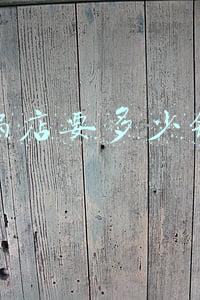 店要多少